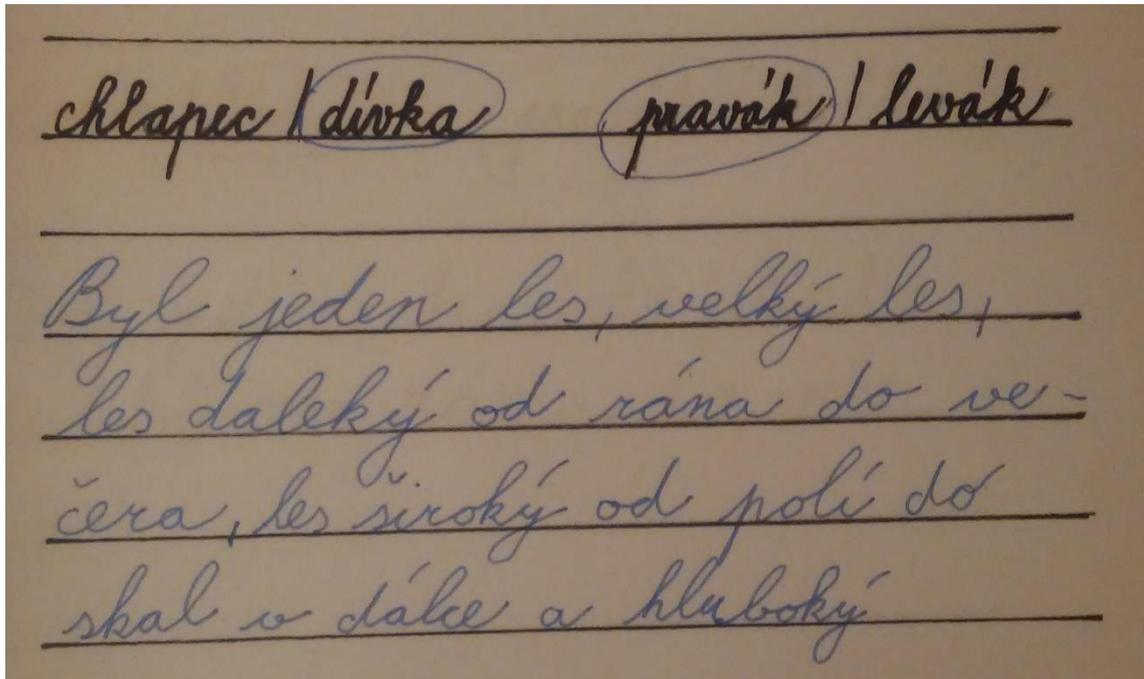 chlapec / dívka pravák / levák
Byl jeden les, velký les,
les daleký od rána do ve-
čera, les široký od polí do
skal v dálce a hluboký